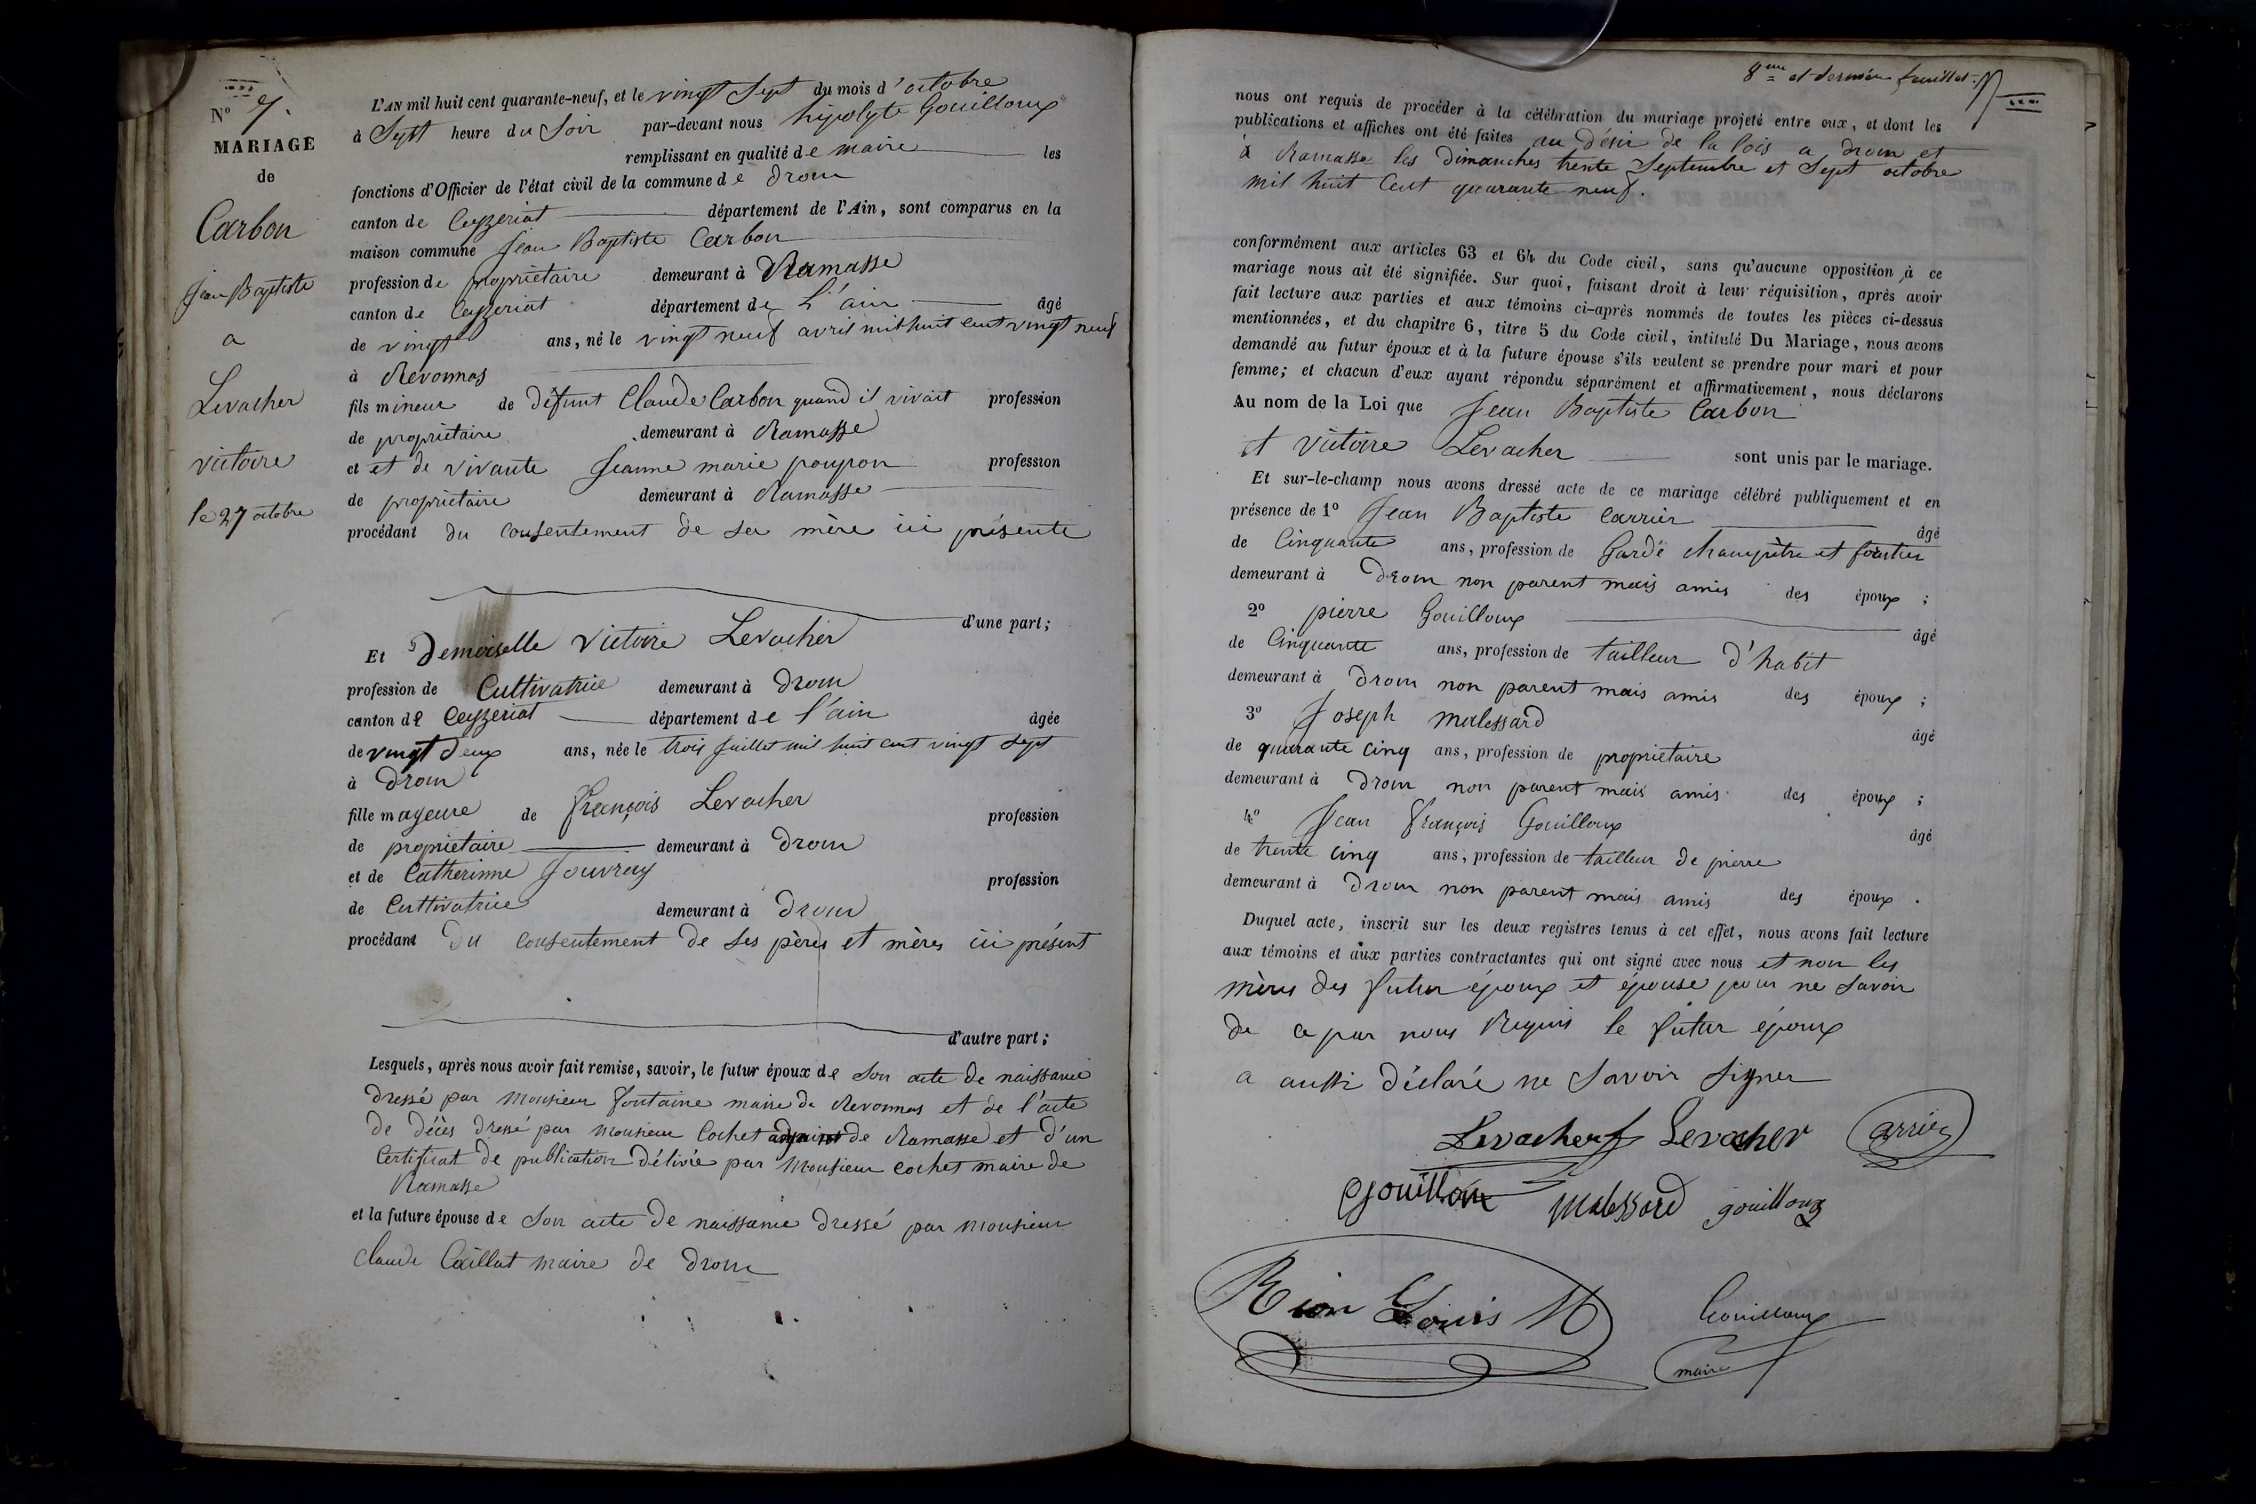 N° 7.
MARIAGE
de
Carbon
Jean Baptiste
a
Levacher
victoire
le 27 octobre
L'AN mil huit cent quarante-neuf, et le vingt Sept du mois d'octobre
à Sept heure du Soir par-devant nous hipolyte Gouilloux
remplissant en qualité de maire les
fonctions d'Officier de l'état civil de la commune de Drom
canton de Ceyzeriat département de l'Ain, sont comparus en la
maison commune Jean Baptiste Carbon
profession de propriétaire demeurant à Ramasse
canton de Ceyzeriat département de L'ain âgé
de vingt ans, né le vingt neuf avril mil huit cent vingt neuf
à Revonnas
fils mineur de défunt Claude Carbon quand il vivait profession
de propriétaire demeurant à Ramasse
et et de vivante Jeanne marie poupon profession
de propriétaire demeurant à Ramasse
procédant du consentement de sa mère ici présente
d'une part;
Et Demoiselle Victoire Levacher
profession de Cultivatrice demeurant à Drom
canton de Ceyzeriat département de l'ain âgée
de vingt deux ans, née le trois juillet mil huit cent vingt sept
à Drom
fille mageure de François Levacher profession
de propriétaire demeurant à Drom
et de Catherinne Jouvray profession
de Cultivatrice demeurant à Drom
procédant du consentement de ses pères et mères ici présent
d'autre part;
Lesquels, après nous avoir fait remise, savoir, le futur époux de son acte de naissance
dressé par Monsieur fontaine maire de Revonnas et de l'acte
de décès dressé par Monsieur Cochet de Ramasse et d'un
Certificat de publication délivré par Monsieur cochet maire de
Ramasse
et la future épouse de son acte de naissance dressé par Monsieur
Claude Caillat maire de Drom
8eme et dernier feuillet
nous ont requis de procéder à la célébration du mariage projeté entre eux, et dont les
publications et affiches ont été faites au désir de la lois a Drom et
à Ramasse les Dimanches trente Septembre et Sept octobre
mil huit Cent quarante neuf.
conformément aux articles 63 et 64 du Code civil, sans qu'aucune opposition à ce
mariage nous ait été signifiée. Sur quoi, faisant droit à leur réquisition, après avoir
fait lecture aux parties et aux témoins ci-après nommés de toutes les pièces ci-dessus
mentionnées, et du chapitre 6, titre 5 du Code civil, intitulé Du Mariage, nous avons
demandé au futur époux et à la future épouse s'ils veulent se prendre pour mari et pour
femme; et chacun d'eux ayant répondu séparément et affirmativement, nous déclarons
Au nom de la Loi que Jean Baptiste Carbon
et victoire Levacher sont unis par le mariage.
Et sur-le-champ nous avons dressé acte de ce mariage célébré publiquement et en
présence de 1° Jean Baptiste Carrier âgé
de Cinquante ans, profession de Garde champêtre et forestier
demeurant à Drom non parent mais amis des époux ;
2° pierre Gouilloux âgé
de Cinquante ans, profession de tailleur d'habit
demeurant à Drom non parent mais amis des époux ;
3° Joseph malessard âgé
de quarante cinq ans, profession de propriétaire
demeurant à Drom non parent mais amis des époux ;
4° Jean François Gouilloux âgé
de trente cinq ans, profession de tailleur de pierre
demeurant à Drom non parent mais amis des époux .
Duquel acte, inscrit sur les deux registres tenus à cet effet, nous avons fait lecture
aux témoins et aux parties contractantes qui ont signé avec nous et non les
mères des futur époux et épouse pour ne savoir
de ce par nous Requis le futur époux
a aussi déclaré ne savoir signer
Levacher f Levacher Carrier
Gouilloux Malessard gouilloux
Rion Louis M Gouilloux
maire